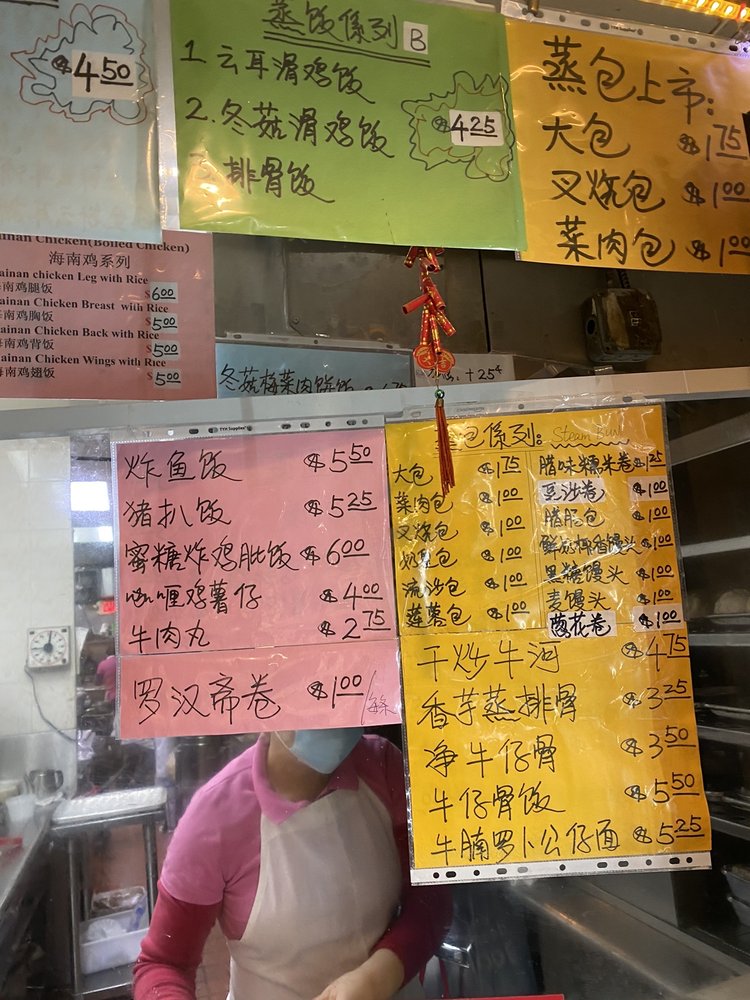 $4.50
蒸饭係列 B
1. 云耳滑鸡饭
2. 冬菇滑鸡饭
3. 排骨饭
$4.25
蒸包上市:
大包 $1.75
叉烧包 $1.00
菜肉包 $1.00
ainan Chicken(Boiled Chicken)
海南鸡系列
ainan chicken Leg with Rice
海南鸡腿饭 $6.00
ainan Chicken Breast with Rice
海南鸡胸饭 $5.00
ainan Chicken Back with Rice
海南鸡背饭 $5.00
ainan Chicken Wings with Rice
海南鸡翅饭 $5.00
冬菇梅菜肉饼饭
+25¢
TYH Supplies
炸鱼饭 $5.50
猪扒饭 $5.25
蜜糖炸鸡肶饭 $6.00
咖喱鸡薯仔 $4.00
牛肉丸 $2.75
罗汉斋卷 $1.00/条
包係列: Steam Bun
大包 $1.75
菜肉包 $1.00
叉烧包 $1.00
奶皇包 $1.00
流沙包 $1.00
莲蓉包 $1.00
腊味糯米卷 $1.25
豆沙卷 $1.00
腊肠包 $1.00
鲜奶椰香馒头 $1.00
黑糖馒头 $1.00
麦馒头 $1.00
葱花卷 $1.00
干炒牛河 $4.75
香芋蒸排骨 $3.25
净牛仔骨 $3.50
牛仔骨饭 $5.50
牛腩罗卜公仔面 $5.25